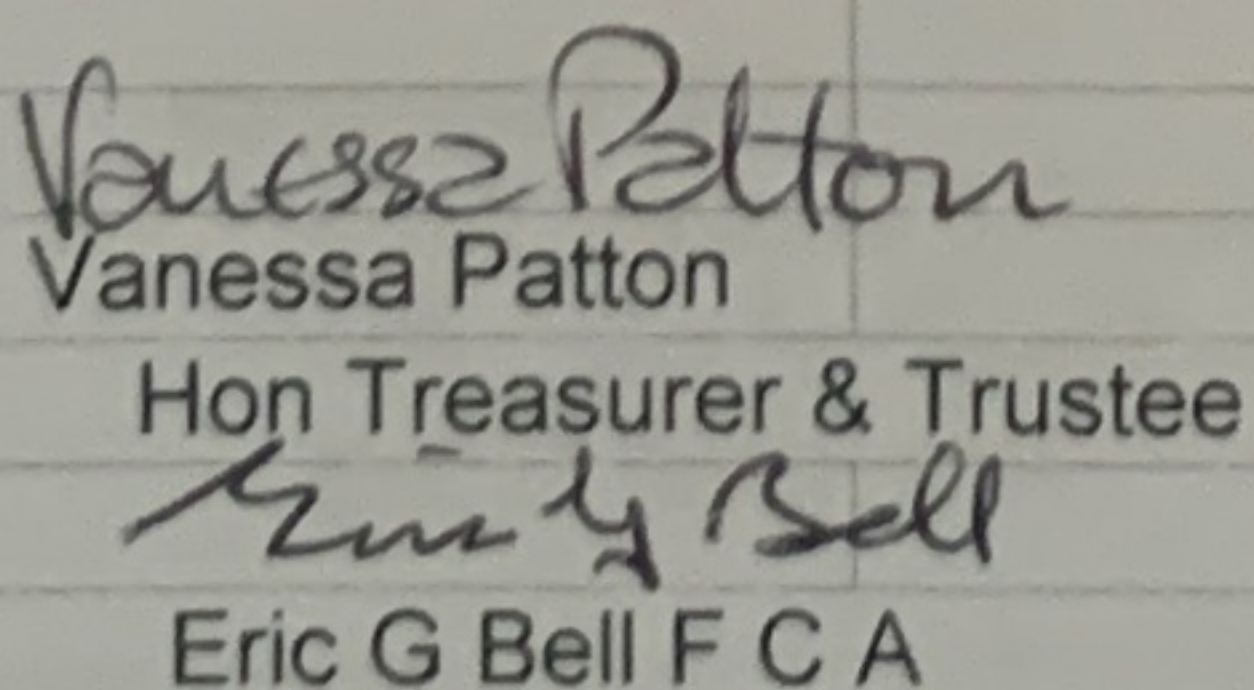 Vanessa Patton
Vanessa Patton
Hon Treasurer & Trustee
Eric G Bell
Eric G Bell F C A